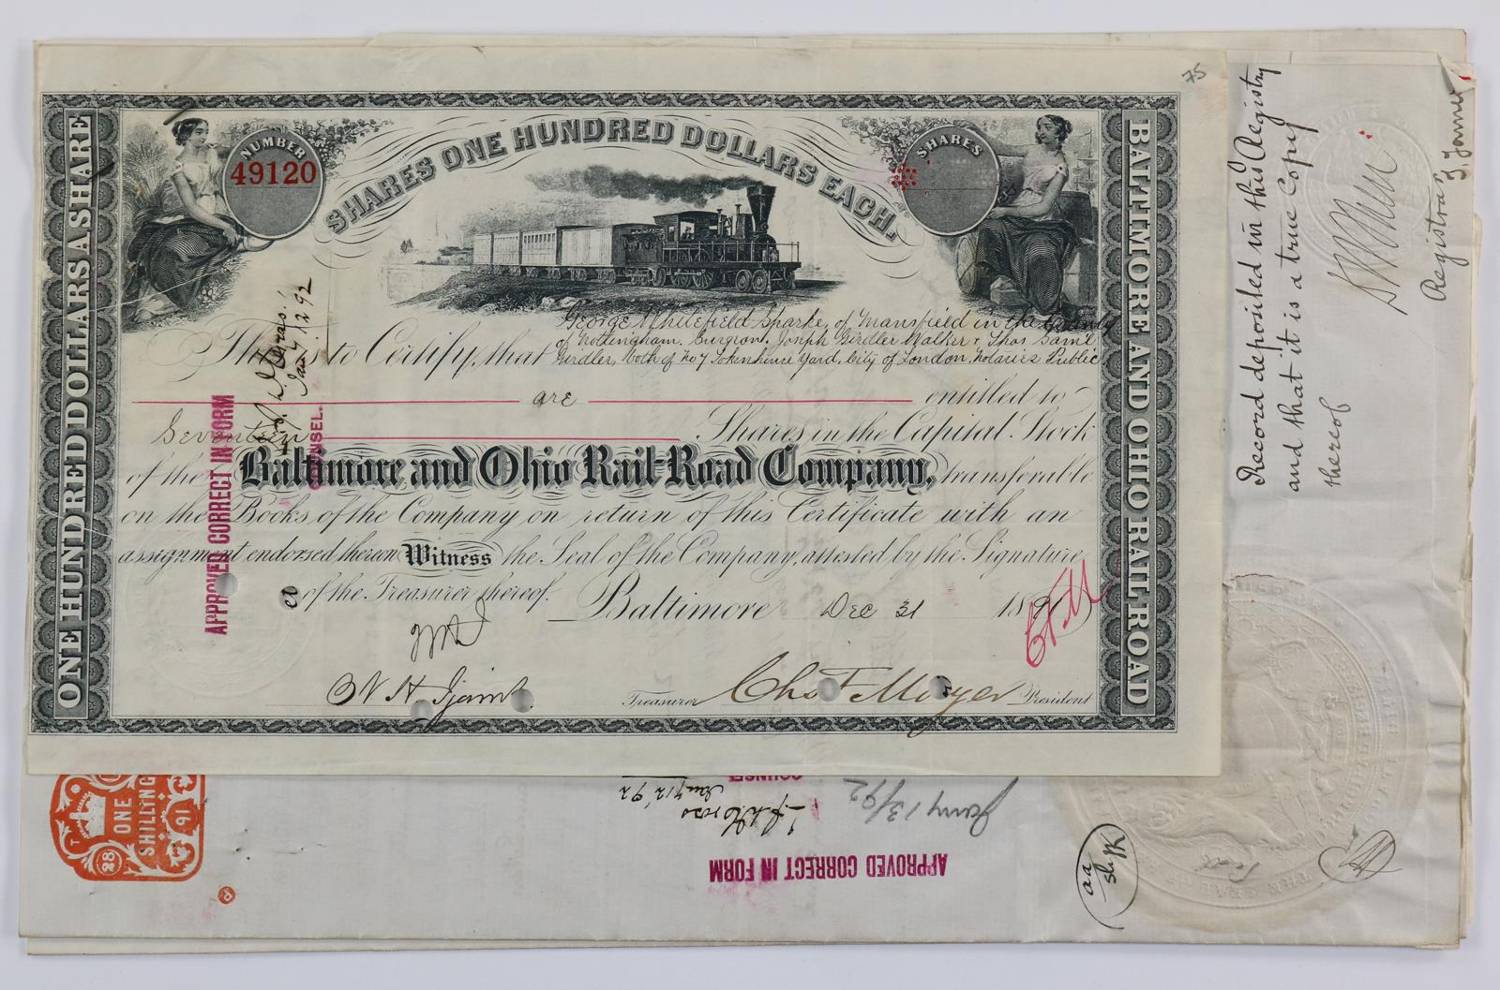 75
ONE HUNDRED DOLLARS A SHARE
NUMBER
49120
SHARES ONE HUNDRED DOLLARS EACH.
SHARES
BALTIMORE AND OHIO RAIL ROAD
This is to Certify, that George Whitefield Sparke, of Mansfield in the County
of Nottingham. Surgeon. Joseph Girdler Walker & Thos Saml
Girdler, both of No 7 Tokenhouse Yard, City of London, Notaries Public
are entitled to
Seventeen Shares in the Capital Stock
of the Baltimore and Ohio Rail-Road Company, transferable
on the Books of the Company on return of this Certificate with an
assignment endorsed thereon Witness the Seal of the Company, attested by the Signature
of the Treasurer thereof. Baltimore Dec 31 1891
Treasurer Chas F Mayer President
APPROVED CORRECT IN FORM
COUNSEL.
Jany 12 '92
Record deposited in this Registry
and that it is a true Copy
thereof
Registrar
ONE
SHILLING
28
91
APPROVED CORRECT IN FORM
COUNSEL
Jany 12 '92
Jany 13/92